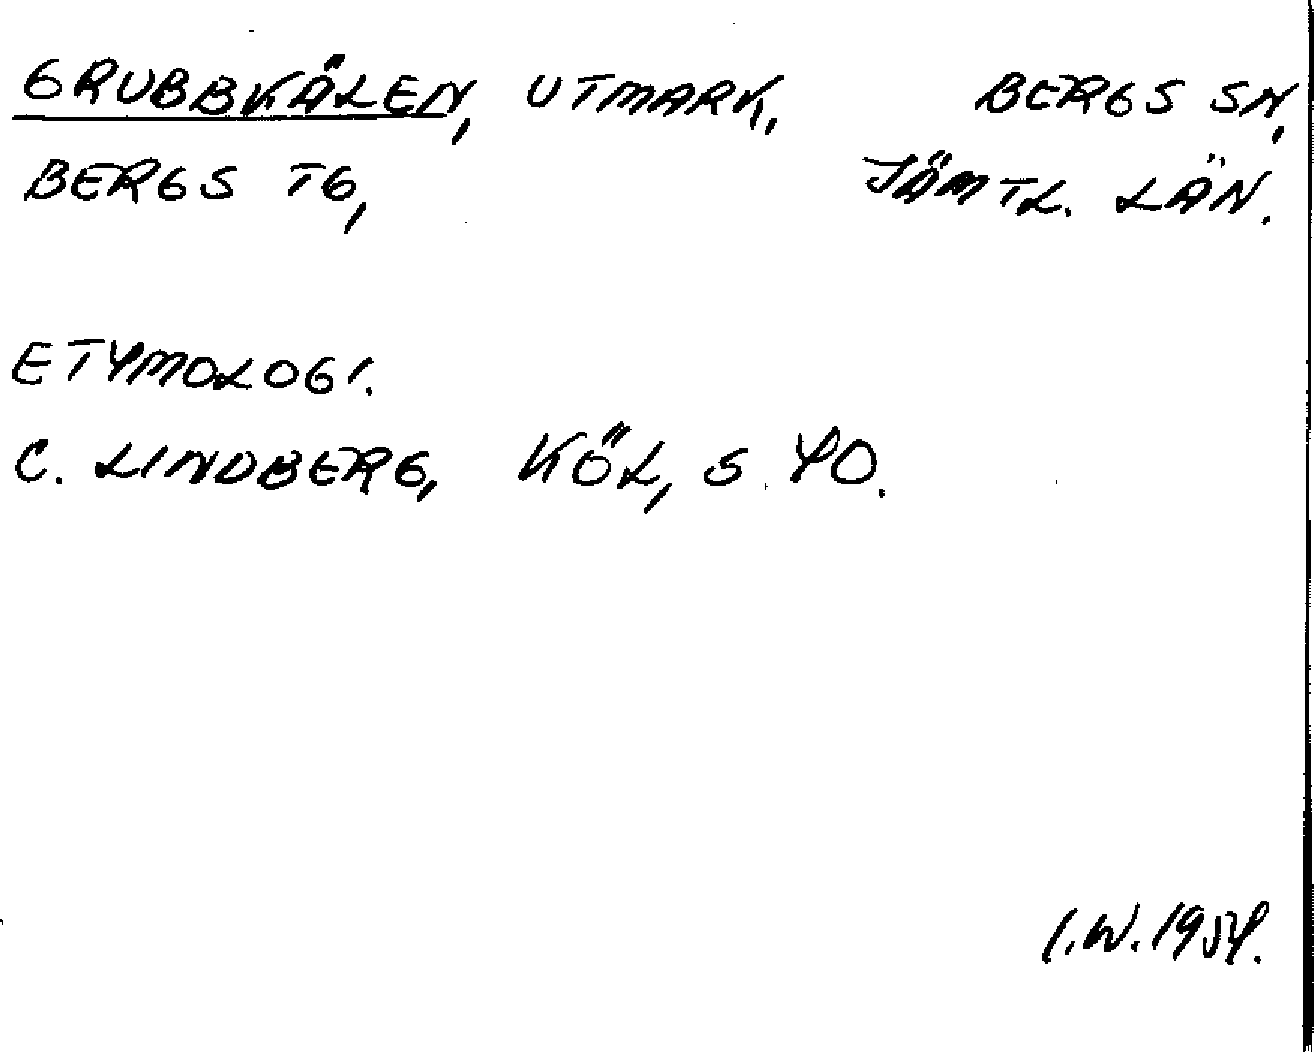 GRUBBKÄLEN, UTMARK, BERGS SN,
BERGS TG, JÄMTL. LÄN.
ETYMOLOGI.
C. LINDBERG, KÖL, S. 40.
I.W. 1954.